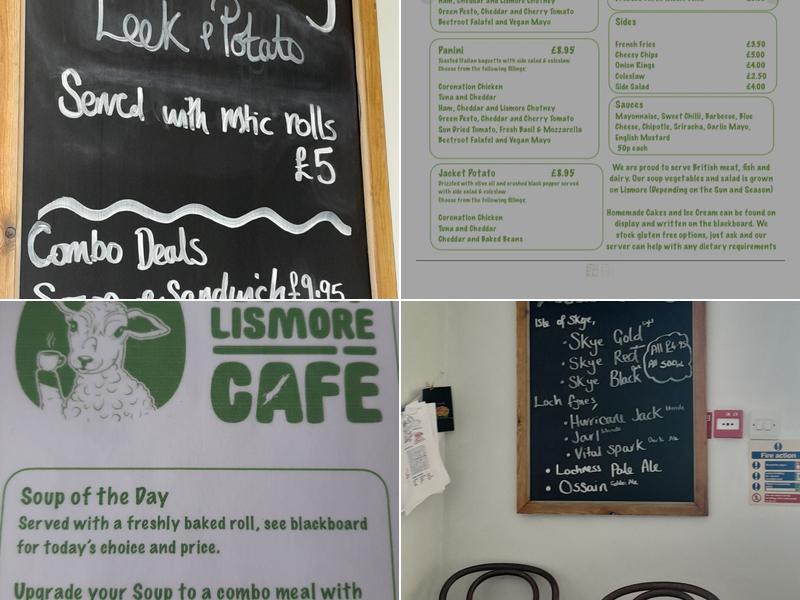 Leek & Potato
Served with rolls
£5
Combo Deals
Sandwich £9.95
Ham, Cheddar and Lismore Chutney
Green Pesto, Cheddar and Cherry Tomato
Beetroot Falafel and Vegan Mayo
Panini £8.95
Toasted Italian baguette with side salad & coleslaw
Choose from the following fillings:
Coronation Chicken
Tuna and Cheddar
Ham, Cheddar and Lismore Chutney
Green Pesto, Cheddar and Cherry Tomato
Sun Dried Tomato, Fresh Basil & Mozzarella
Beetroot Falafel and Vegan Mayo
Jacket Potato £8.95
Drizzled with olive oil and crushed black pepper served
with side salad & coleslaw
Choose from the following fillings:
Coronation Chicken
Tuna and Cheddar
Cheddar and Baked Beans
Sides
French Fries £3.50
Cheesy Chips £5.00
Onion Rings £4.00
Coleslaw £2.50
Side Salad £4.00
Sauces
Mayonnaise, Sweet Chilli, Barbecue, Blue
Cheese, Chipotle, Sriracha, Garlic Mayo,
English Mustard
50p each
We are proud to serve British meat, fish and
dairy. Our soup vegetables and salad is grown
on Lismore (Depending on the Sun and Season)
Homemade Cakes and Ice Cream can be found on
display and written on the blackboard. We
stock gluten free options, just ask and our
server can help with any dietary requirements
LISMORE
CAFE
Soup of the Day
Served with a freshly baked roll, see blackboard
for today's choice and price.
Upgrade your Soup to a combo meal with
Isle of Skye,
• Skye Gold
• Skye Red
• Skye Black
All £4.95
All 500ml
Loch fynes
• Hurricane Jack blonde
• Jarl blonde
• Vital Spark Dark Ale
• Lochness Pale Ale
• Ossain Golden Ale
Fire action